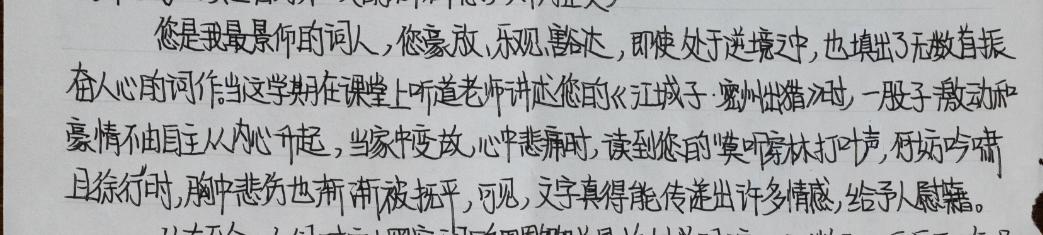 您是我最景仰的词人，您豪放、乐观、豁达，即使处于逆境之中，也填出了无数首振
奋人心的词作。当这学期在课堂上听道老师讲述您的《江城子·密州出猎》时，一股子激动和
豪情不由自主从内心升起，当家中变故，心中悲痛时，读到您的“莫听穿林打叶声，何妨吟啸
且徐行”时，胸中悲伤也渐渐被抚平，可见，文字真得能传递出许多情感，给予人慰藉。